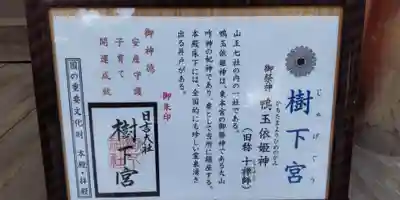 樹下宮
じゅげぐう
御祭神 鴨玉依姫神
かもたまよりひめのかみ
（旧称 十禅師）
じゅうぜんじ
山王七社の内の一社である。
鴨玉依姫神は、東本宮の御祭神である大山
咋神の妃神であり、妻として当所に鎮座する。
本殿床下には、全国的にも珍しい霊泉湧き
出る井戸がある。
御神徳
安産守護
子育て
開運成就
御朱印
日吉大社
樹下宮
国の重要文化財 本殿・拝殿